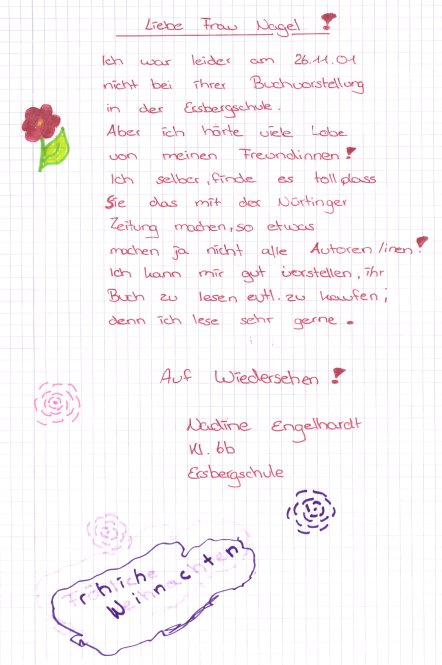 Liebe Frau Nagel !
Ich war leider am 26.11.01
nicht bei ihrer Buchvorstellung
in der Ersbergschule.
Aber ich hörte viele Lobe
von meinen Freundinnen!
Ich selber, finde es toll, dass
Sie das mit der Nürtinger
Zeitung machen, so etwas
machen ja nicht alle Autoren/inen!
Ich kann mir gut vorstellen, ihr
Buch zu lesen evtl. zu kaufen;
denn ich lese sehr gerne.
Auf Wiedersehen !
Nadine Engelhardt
Kl. 6b
Ersbergschule
Fröhliche
Weihnachten